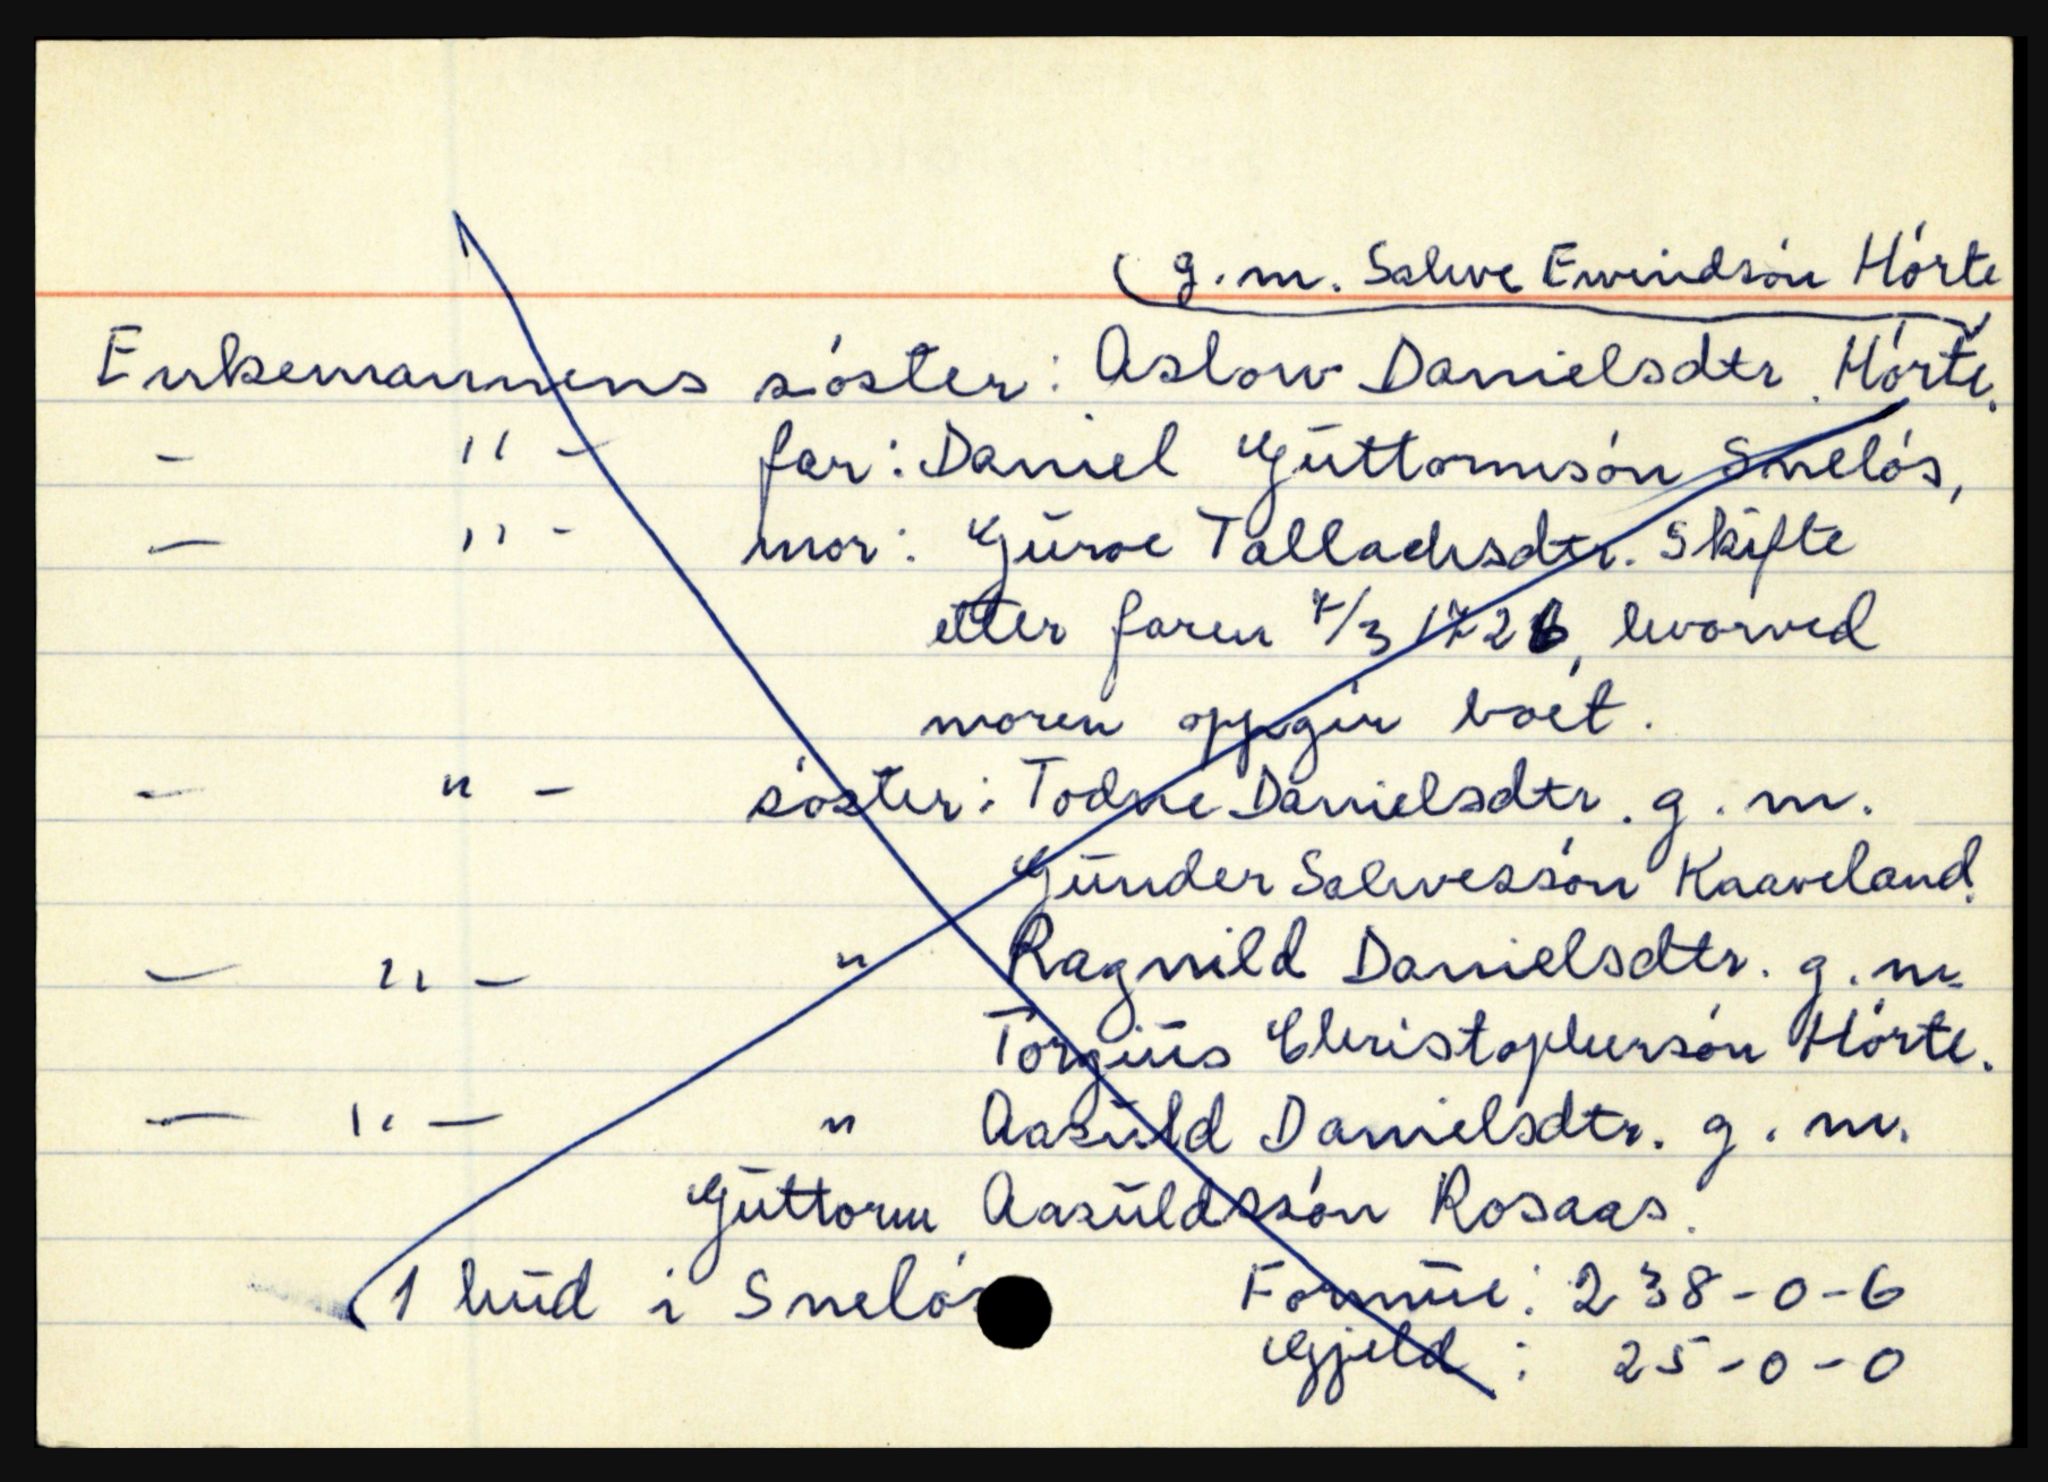 (g.m. Salve Evindsón Hórte
Enkemannens sóster: Aslow Danielsdtr. Hórte.
- " - far: Daniel Gūttormsón Snelós,
- " - mor: Gūroe Tallachsdtr. Skifte
etter faren 7/3 1726, hvorved
moren oppgir boet.
- " - sóster: Todne Danielsdtr. g.m.
Gūnder Salvessón Kaaveland.
- " - " Ragnild Danielsdtr. g.m.
Torgiūs Christophersón Hórte.
- " - " Aasūld Danielsdtr. g.m.
Gūttorm Aasūldssón Rosaas.
1 hūd i Snelós Formūe: 238-0-6
Gjeld: 25-0-0